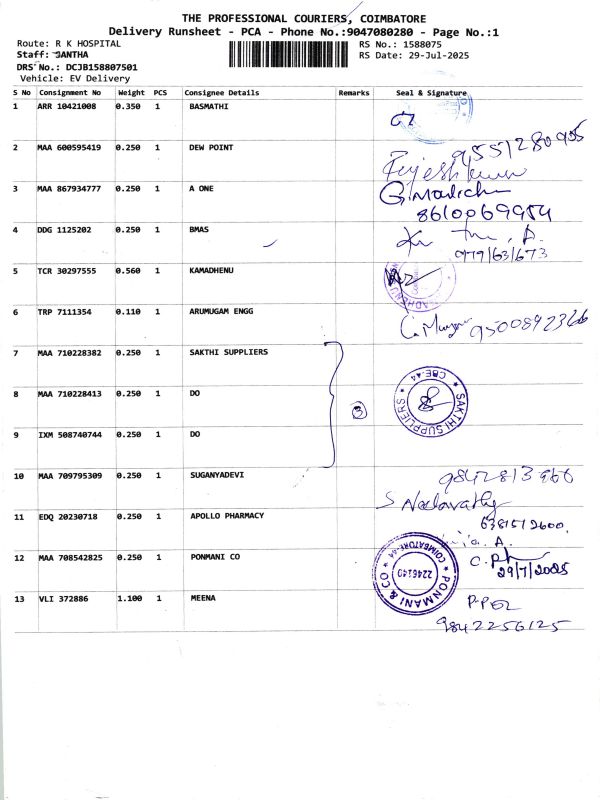 THE PROFESSIONAL COURIERS, COIMBATORE
Delivery Runsheet - PCA - Phone No.:9047080280 - Page No.:1
Route: R K HOSPITAL RS No.: 1588075
Staff: JANTHA RS Date: 29-Jul-2025
DRS No.: DCJB158807501
Vehicle: EV Delivery
S No Consignment No Weight PCS Consignee Details Remarks Seal & Signature
1 ARR 10421008 0.350 1 BASMATHI
2 MAA 600595419 0.250 1 DEW POINT 9551280905
3 MAA 867934777 0.250 1 A ONE
8610069954
4 DDG 1125202 0.250 1 BMAS
9791631673
5 TCR 30297555 0.560 1 KAMADHENU
6 TRP 7111354 0.110 1 ARUMUGAM ENGG 9500892366
7 MAA 710228382 0.250 1 SAKTHI SUPPLIERS
8 MAA 710228413 0.250 1 DO 3 SAKTHI SUPPLIERS CBE-44
9 IXM 508740744 0.250 1 DO
10 MAA 709795309 0.250 1 SUGANYADEVI 9842813966
11 EDQ 20230718 0.250 1 APOLLO PHARMACY
6381512600
12 MAA 708542825 0.250 1 PONMANI CO PONMANI & CO COIMBATORE-44 2246140
29/7/2025
13 VLI 372886 1.100 1 MEENA
9842256125